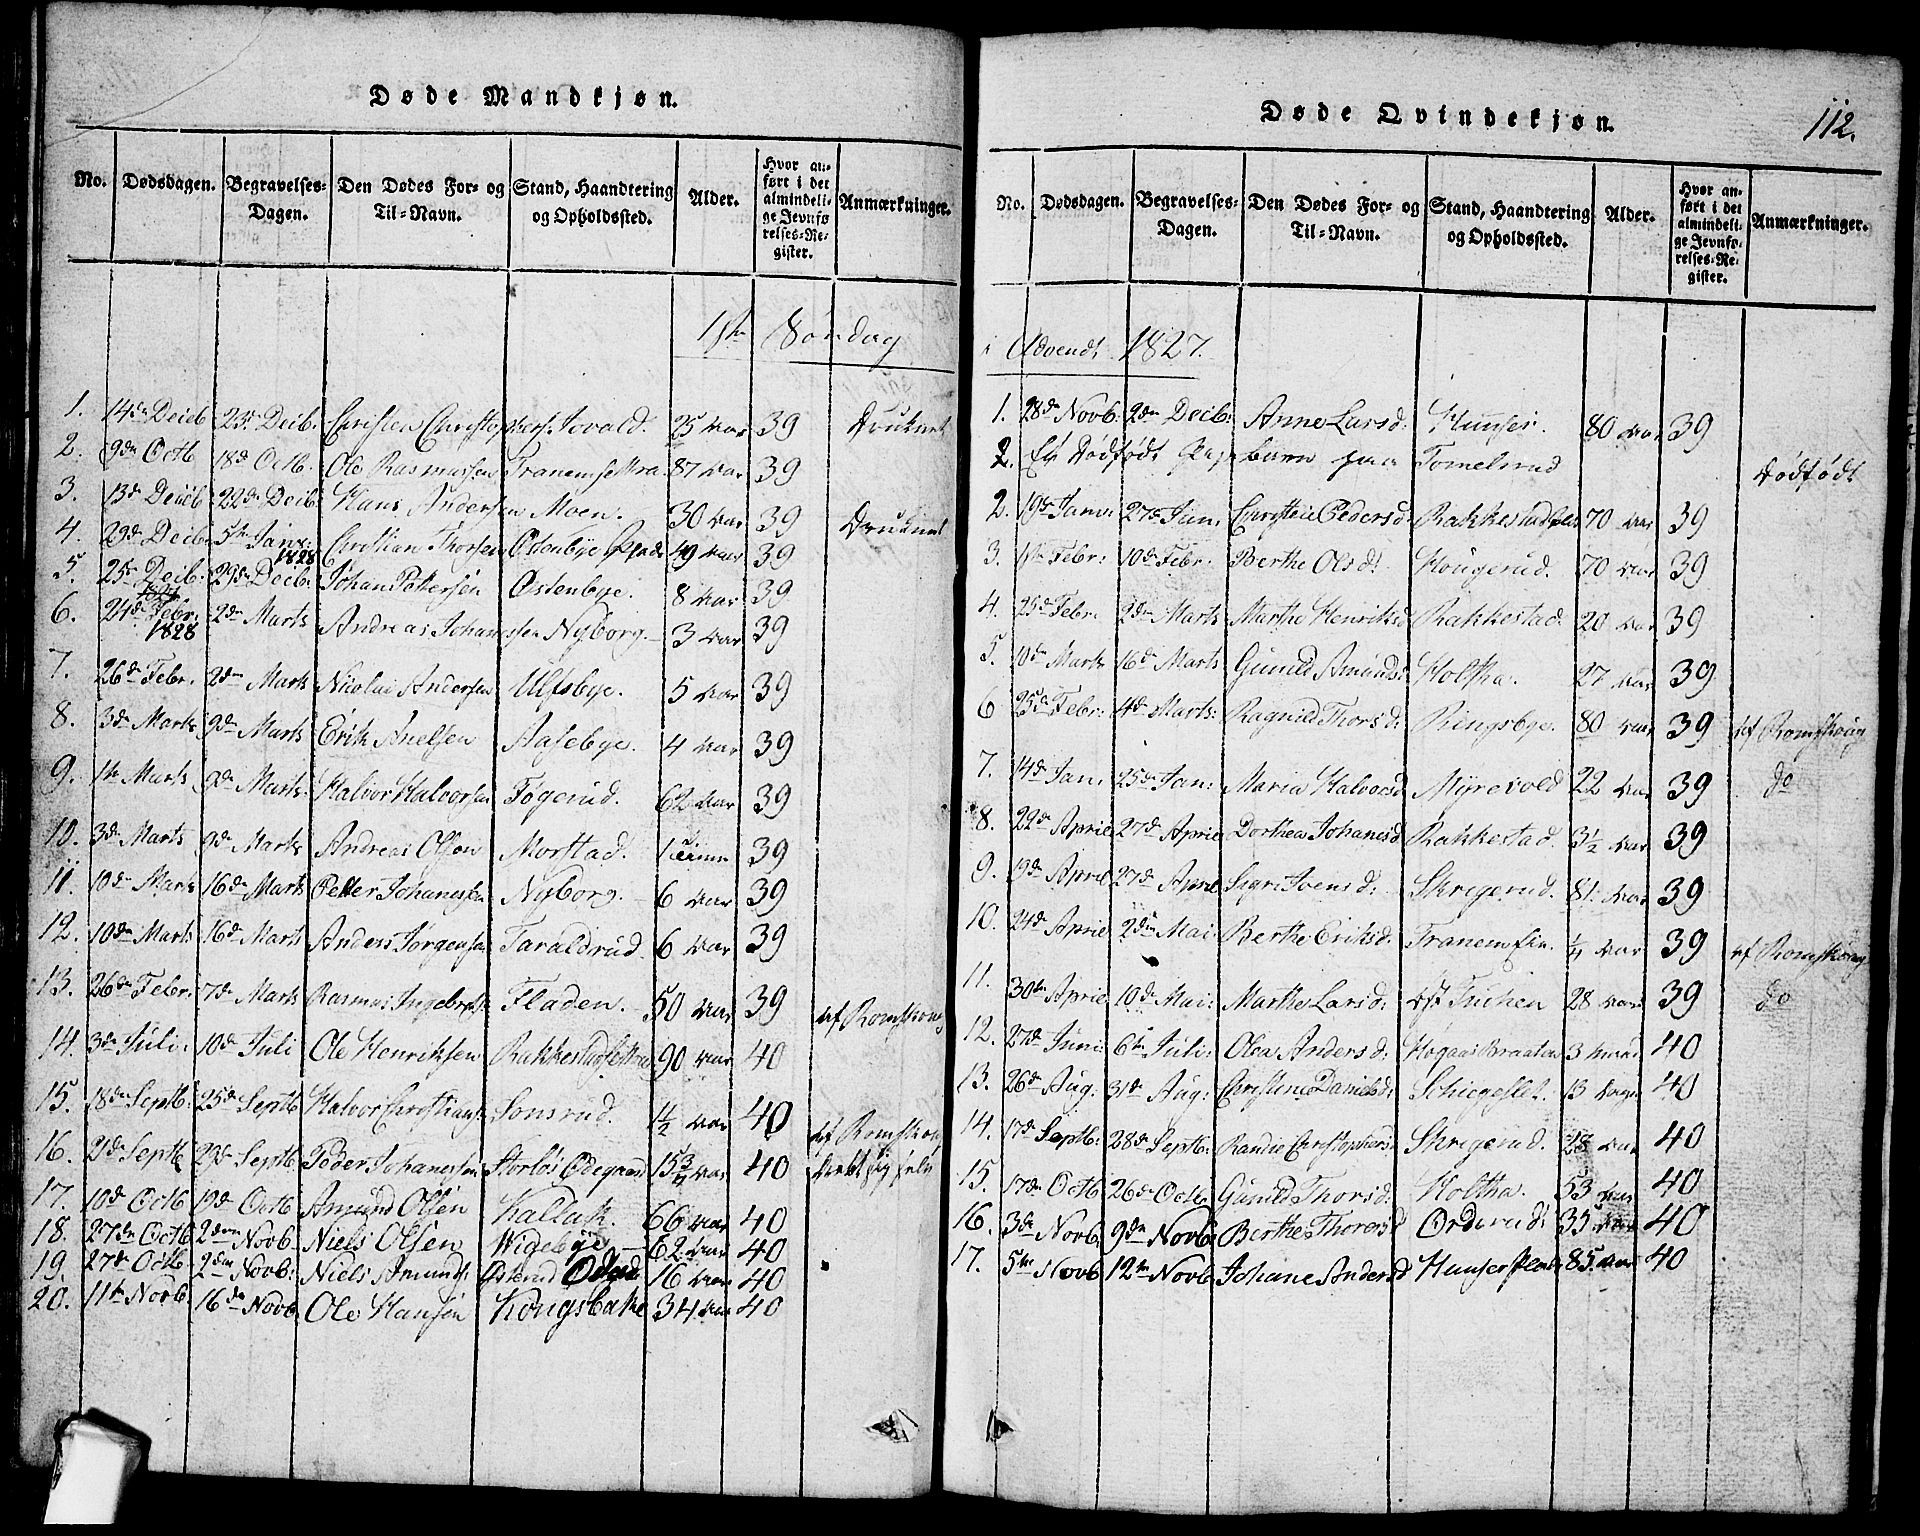 Døde Mandkjøn.
No. Dødsdagen. Begravelses-Dagen. Den Dødes For- og Til-Navn. Stand, Haandtering og Opholdssted. Alder. Hvor anført i det almindelige Jevnførelses-Register. Anmærkninger.
1ste Søndag
1. 14de Decb 23de Decb. Christen Christophers. Jovald. 25 Aar 39 Druknet
2. 9de Octb 18de Octb. Ole Rasmussen 87 Aar 39
3. 13de Decb 22de Decb. Hans Andersen Moen. 30 Aar 39 Druknet
4. 29de Decb 5te Janv: 1828 Christian Thorsen Østenbye Plads 49 Aar 39
5. 25de Decb: 29de Decb. Johan Pettersen Østenbye. 8 Aar 39
6. 24de Febr. 1828 2den Marts Andreas Johannessen Nyborg. 3 Aar 39
7. 26de Febr. 2den Marts Nicolai Andersen Ulfsbye. 5 Aar 39
8. 3de Marts 9de Marts Erik Anelsen Aasebye. 4 Aar 39
9. 1te Marts 9de Marts. Halvor Halvorsen Togerud. 62 Aar 39
10. 3de Marts 9de Marts Andreas Olsen Morstad. 39
11. 10de Marts 16de Marts Petter Johannessen Nyborg. 6 Aar 39
12. 10de Marts 16de Marts Anders Jørgensen Taraldrud. 6 Aar 39
13. 26de Febr: 7de Marts Rasmus Ingebrets. Fladen. 50 Aar 39 af Romskoug
14. 3de Juli. 10de Juli Ole Henriksen 90 Aar 40
15. 18de Septb: 25de Septb Halvor Christians. Sonsrud. 1½ Aar 40 af Romskoug
16. 21de Septb 29de Septb Peder Johannessen Storløs Ødegaard 15¾ Aar 40
17. 10de Octb 19de Octb Amund Olsen Kallak. 66 Aar 40
18. 27de Octb 2den Novb. Niels Olsen Wigebye 62 Aar 40
19. 27de Octb 2den Novb: Niels Amunds. 16 Aar 40
20. 11te Novb. 16de Novb. Ole Hansen Kongsbake 34 Aar 40
Døde Qvindekjøn. 112.
No. Dødsdagen. Begravelses-Dagen. Den Dødes For- og Til-Navn. Stand, Haandtering og Opholdssted. Alder. Hvor anført i det almindelige Jevnførelses-Register. Anmærkninger.
i Advendt 1827.
1. 28de Novb. 2den Decb: Anne Larsd: 80 Aar 39
2. Et Dødfødt Pigebarn paa Tomelsrud Dødfødt
2. 19de Janv: 27de Jan: Christine Pedersd: 70 Aar 39
3. 1te Febr: 10de Febr. Berthe Olsd: Hougerud. 70 Aar 39
4. 25de Febr. 2den Marts Marthe Henriksd Rakkestad. 20 Aar 39
5. 10de Marts 16de Marts Gunild Amunds: Holtha. 27 Aar 39
6 25de Febr: 4de Marts: Ragnild Thorsd: Ringsbye. 80 Aar 39 af Romskoug
7. 14de Jan: 25de Jan: Maria Halvorsd Myrevold 22 Aar 39 do
8. 22de April 27de April Dorthea Johannesd Rakkestad. 3½ Aar 39
9. 19de April 27de April Sigri Svensd: Skregerud. 81. Aar 39
10. 24de April 2den Mai. Berthe Eriksd. ¼ Aar 39 af Romskoug
11. 30te April 10de Mai: Marthe Larsd: 28 Aar 39 do
12. 27de Juni: 6te Juli: Olea Andersd: Høgaas Braaten 3 40
13. 26de Aug: 31de Aug: Christine Danielsd: 13 Dage 40
14. 17de Septb: 28de Septb. Randie Christophersd: Skregerud. 28 Aar 40
15. 17de Octb 26de Octb. Gunild Thorsd: Holtha. 53 Aar 40
16. 3de Novb. 9de Novb: Berthe Thoresd Ordsrud: 35 Aar 40
17. 5te Novb 12te Novb. Johane Andersd 85. Aar 40